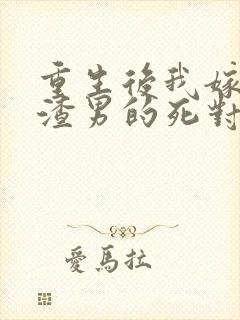 重生後我嫁
渣男的死對
愛馬拉